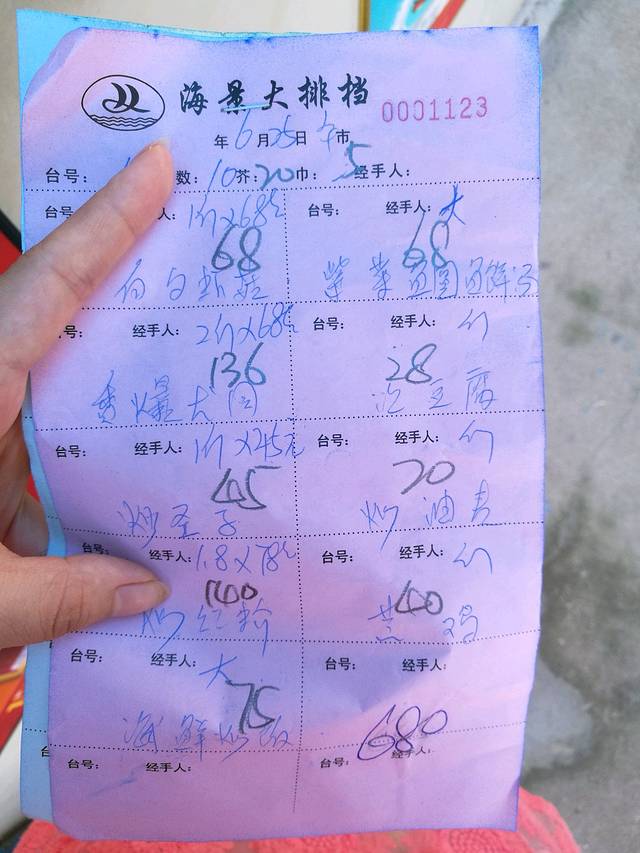 海景大排档 0001123
年6月25日 午市
台号: 数:10 芥:20 巾:5 经手人:
台号: 经手人: 1份×68元
68
白勺虾菇
台号: 经手人: 大
68
紫菜鱼圆海鲜汤
台号: 经手人: 2份×68元
136
香爆大
台号: 经手人: 份
28
豆腐
台号: 经手人: 1份×45元
45
炒圣子
台号: 经手人: 份
20
炒油麦
台号: 经手人: 1.8×78元
140
炒红
台号: 经手人: 份
40
蒸鸡
台号: 经手人: 大
75
海鲜炒饭
台号: 经手人:
680
台号: 经手人:
台号: 经手人: